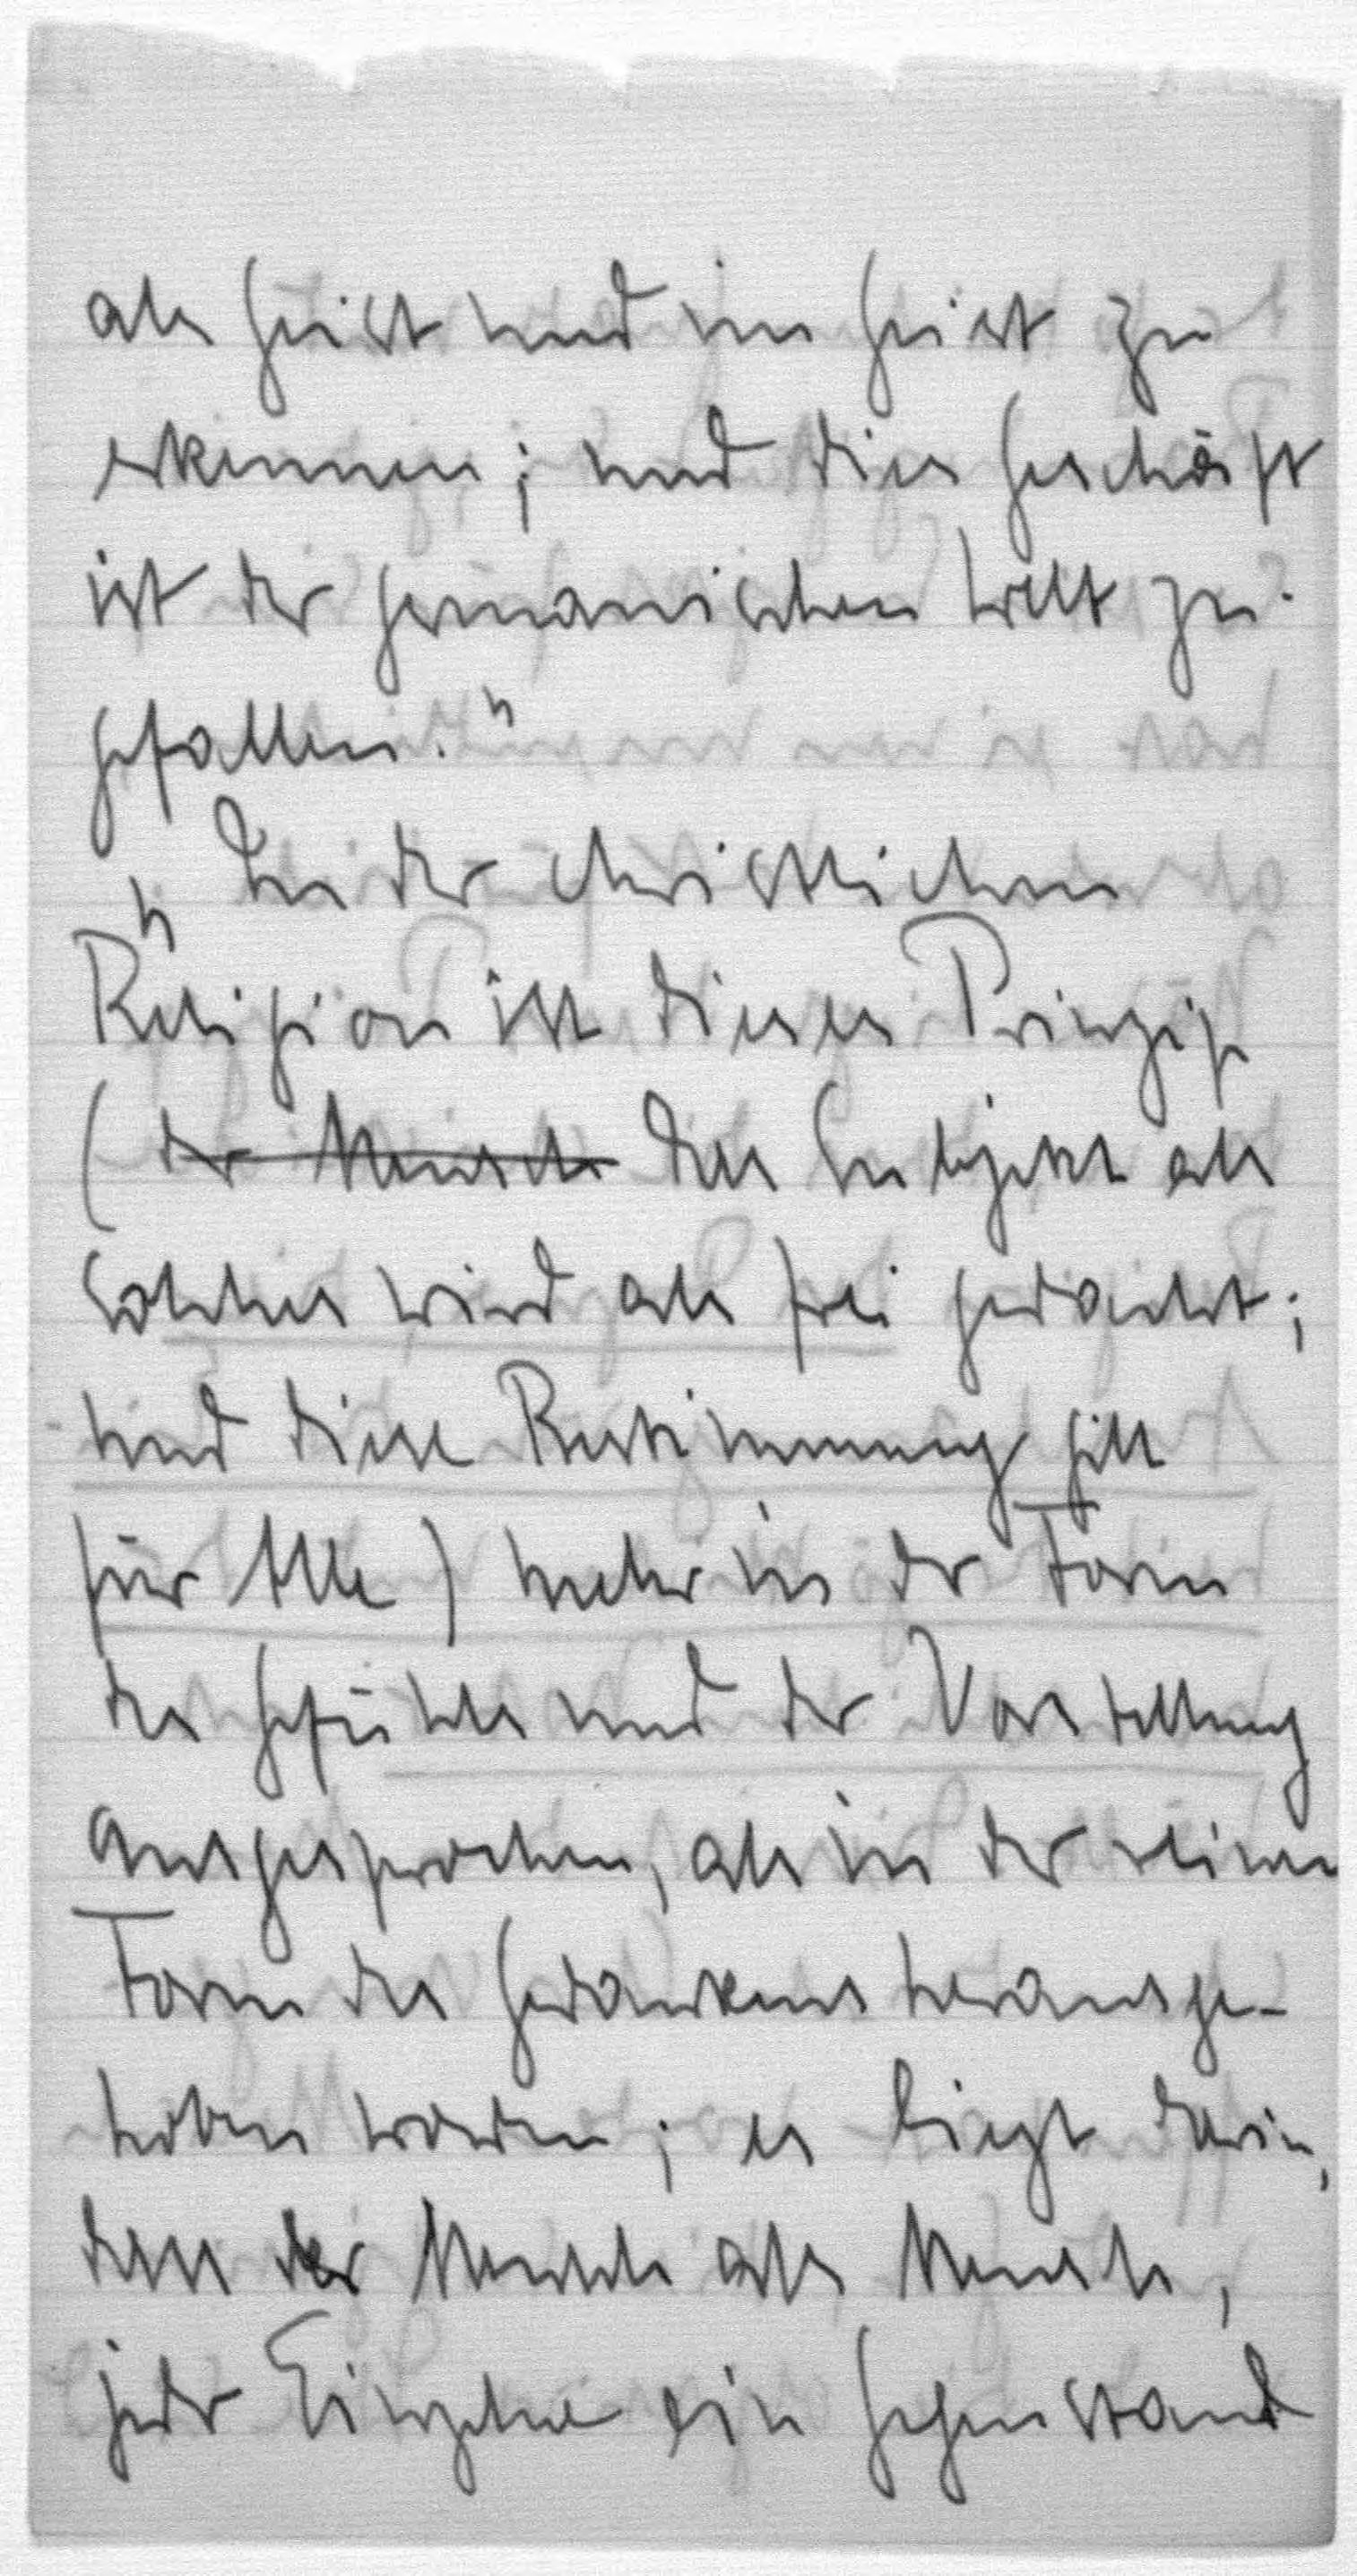 als Geist und im Geist zu
erkennen; und dies Geschäft
ist der germanischen Welt zu-
gefallen."
"In der christlichen
Religion ist dieses Prinzip
(der Mensch das Subjekt als
solches wird als frei gedacht;
und diese Bestimmung gilt
für Alle) mehr in der Form
des Gefühls und der Vorstellung
ausgesprochen, als in der reinen
Form des Gedankens herausge-
hoben worden; es liegt darin,
dass der Mensch als Mensch,
jeder Einzelne ein Gegenstand